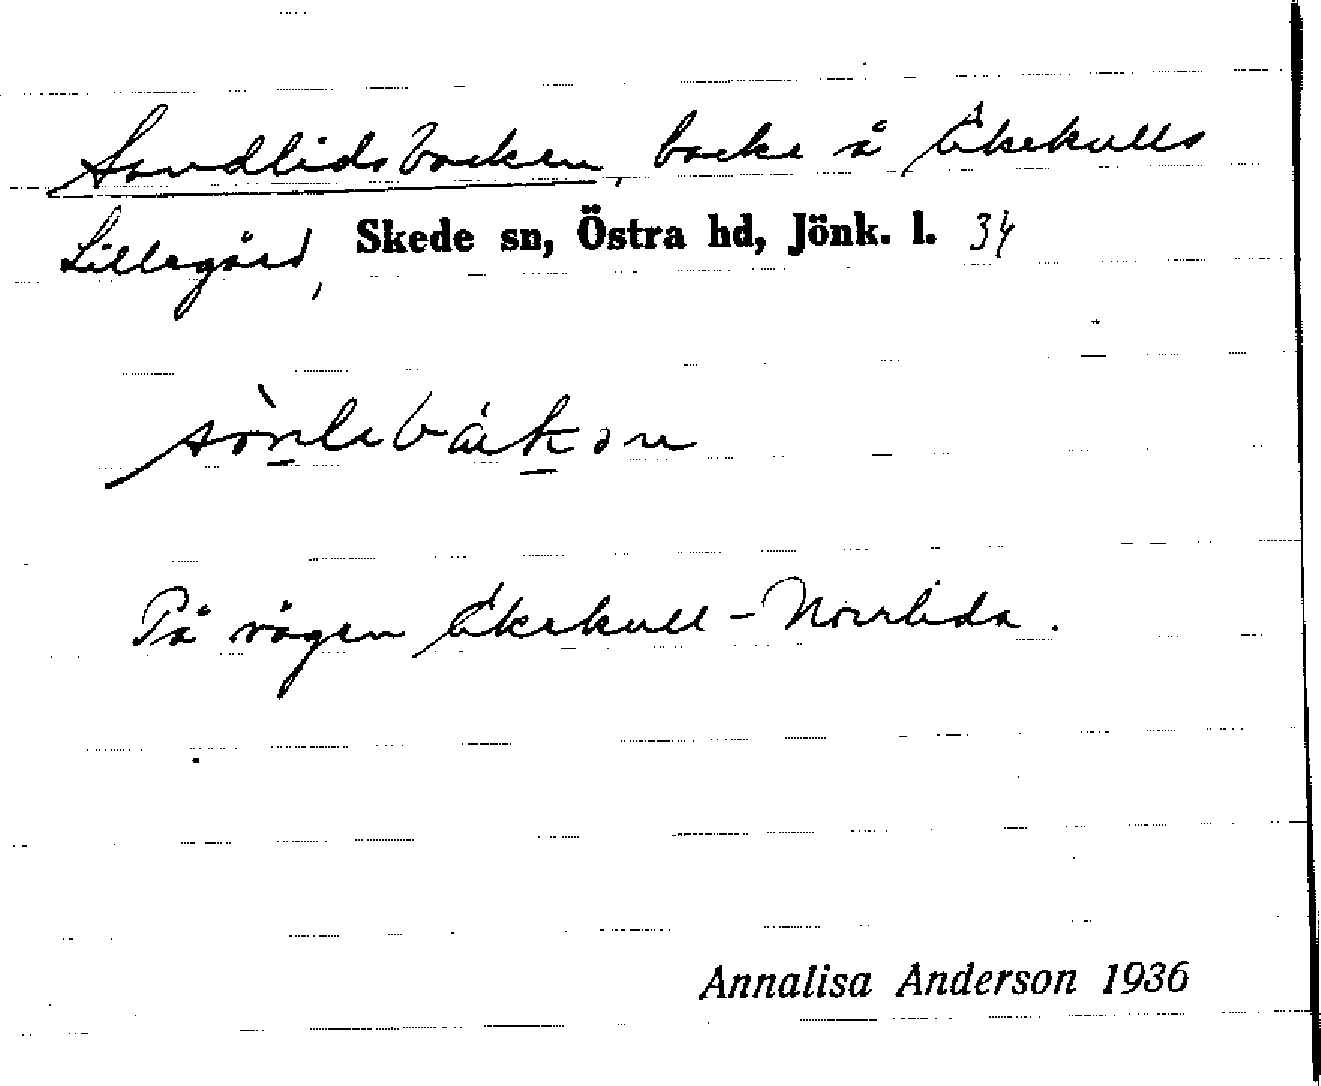 Sandlidsbacken, backe å Åkekulls
Lillegård, Skede sn, Östra hd, Jönk. l. 34
På vägen Åkekull - Norrlida.
Annalisa Anderson 1936